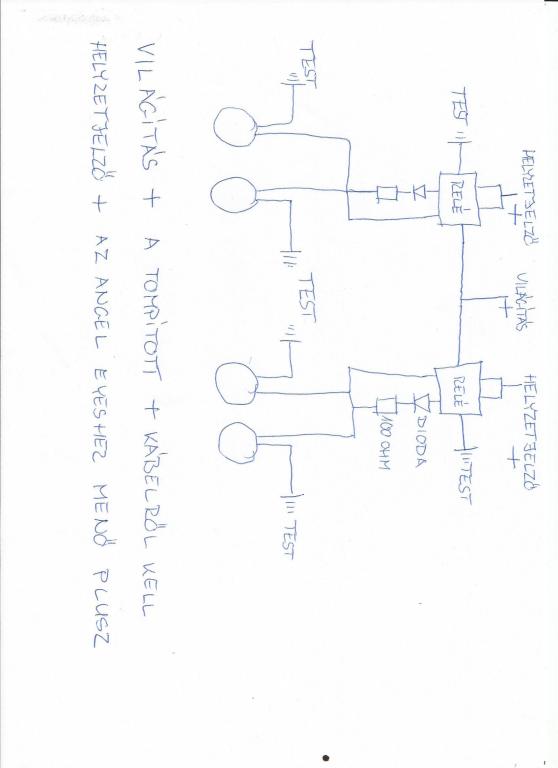 HELYZETJELZŐ
+
VILÁGÍTÁS
+
HELYZETJELZŐ
+
TEST
RELÉ
RELÉ
TEST
DIODA
100 OHM
TEST
TEST
TEST
TEST
VILÁGÍTÁS + A TOMPÍTOTT + KÁBELRŐL KELL
HELYZETJELZŐ + AZ ANGEL EYESHEZ MENŐ PLUSZ